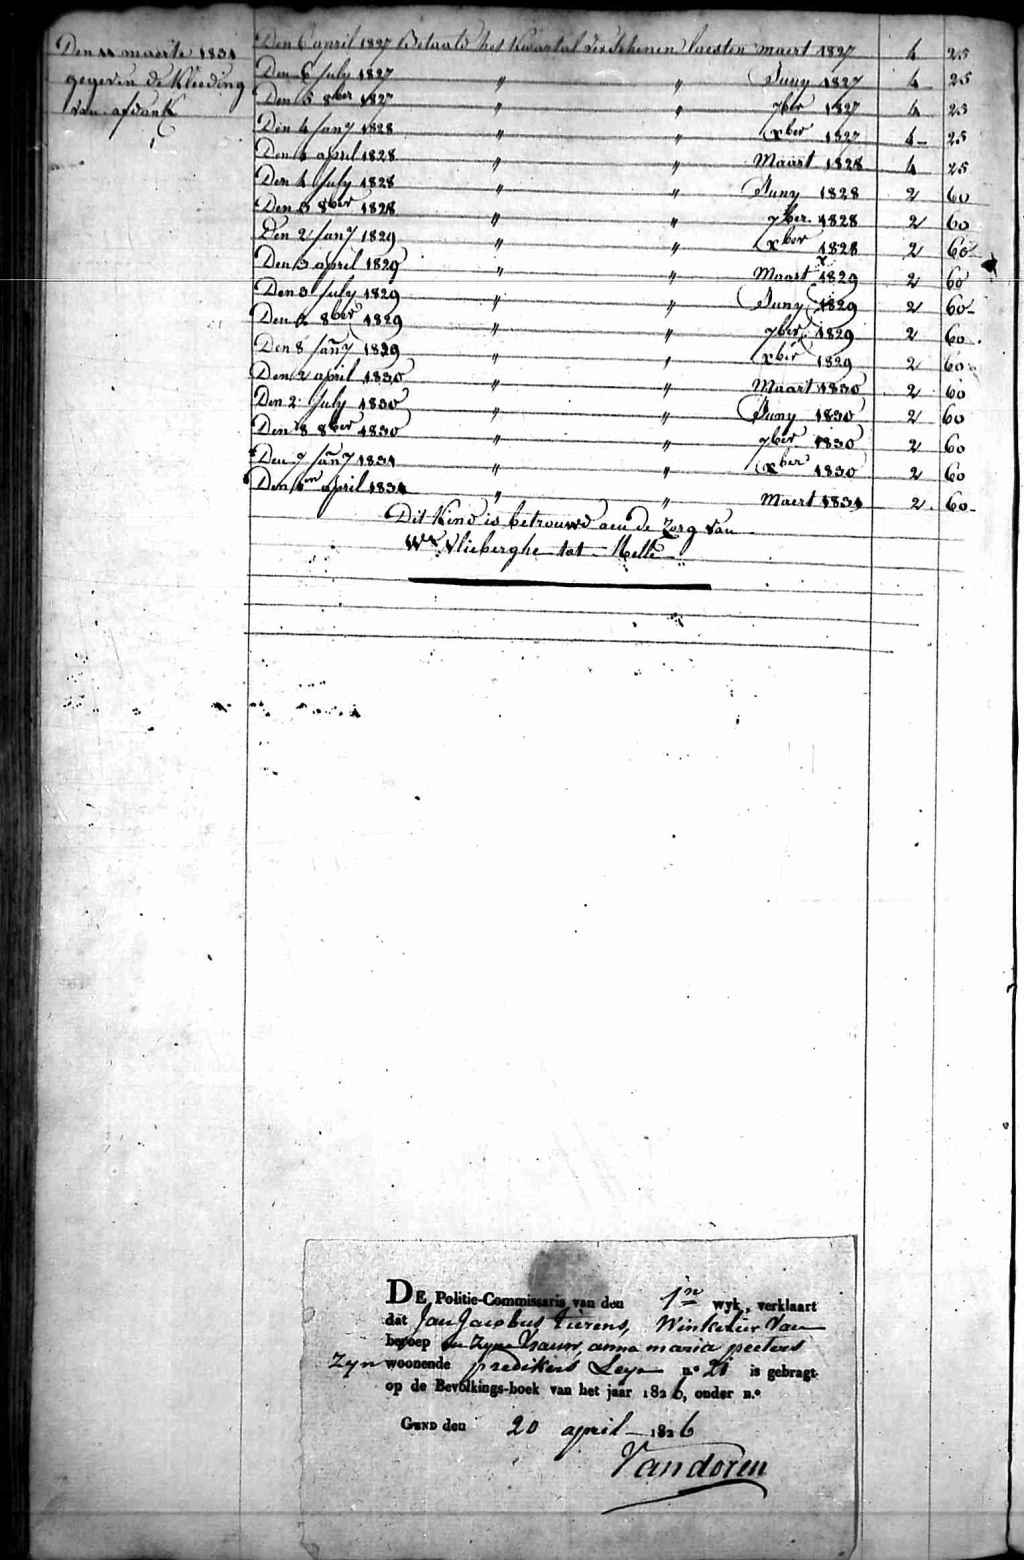 Den 11 maerte 1831
gegeven de Kleeding
van afdank
Den 6 april 1827 Betaald het Kwartal verschenen laesten maert 1827 4 25
Den 6 July 1827 " " Juny 1827 4 25
Den 5 8ber 1827 " " 7ber 1827 4 25
Den 4 Jany 1828 " " xber 1827 4 25
Den april 1828 " " Maart 1828 4 25
Den 4 July 1828 " " Juny 1828 2 60
Den 3 8ber 1828 " " 7ber 1828 2 60
Den 2 Jany 1829 " " xber 1828 2 60
Den 3 april 1829 " " Maart 1829 2 60
Den 3 July 1829 " " Juny 1829 2 60
Den 8ber 1829 " " 7ber 1829 2 60
Den 8 Jany 1829 " " xber 1829 2 60
Den 2 april 1830 " " Maart 1830 2 60
Den 2 July 1830 " " Juny 1830 2 60
Den 8 8ber 1830 " " 7ber 1830 2 60
Den 7 Jany 1831 " " xber 1830 2 60
Den 1en april 1831 " " Maert 1831 2 60
Dit Kind is betrouwd aen de Zorg van
We Vlieberghe tot Melle
DE Politie-Commissaris van den 1n wyk, verklaart
dat Jan Jacobus Tierens, Winkelier Van
beroep en Zyne Vrauw, anna maria peeters
Zyn woonende predikers Leye n.o 21 is gebragt
op de Bevolkings-boek van het jaar 1826, onder n.o
GEND den 20 april 1826
Vandoren